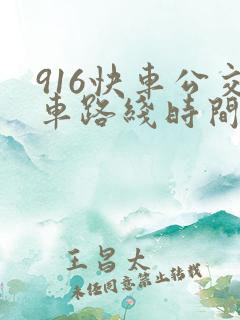 916快車公交
車路綫時間
王昌太
未经同意禁止转载